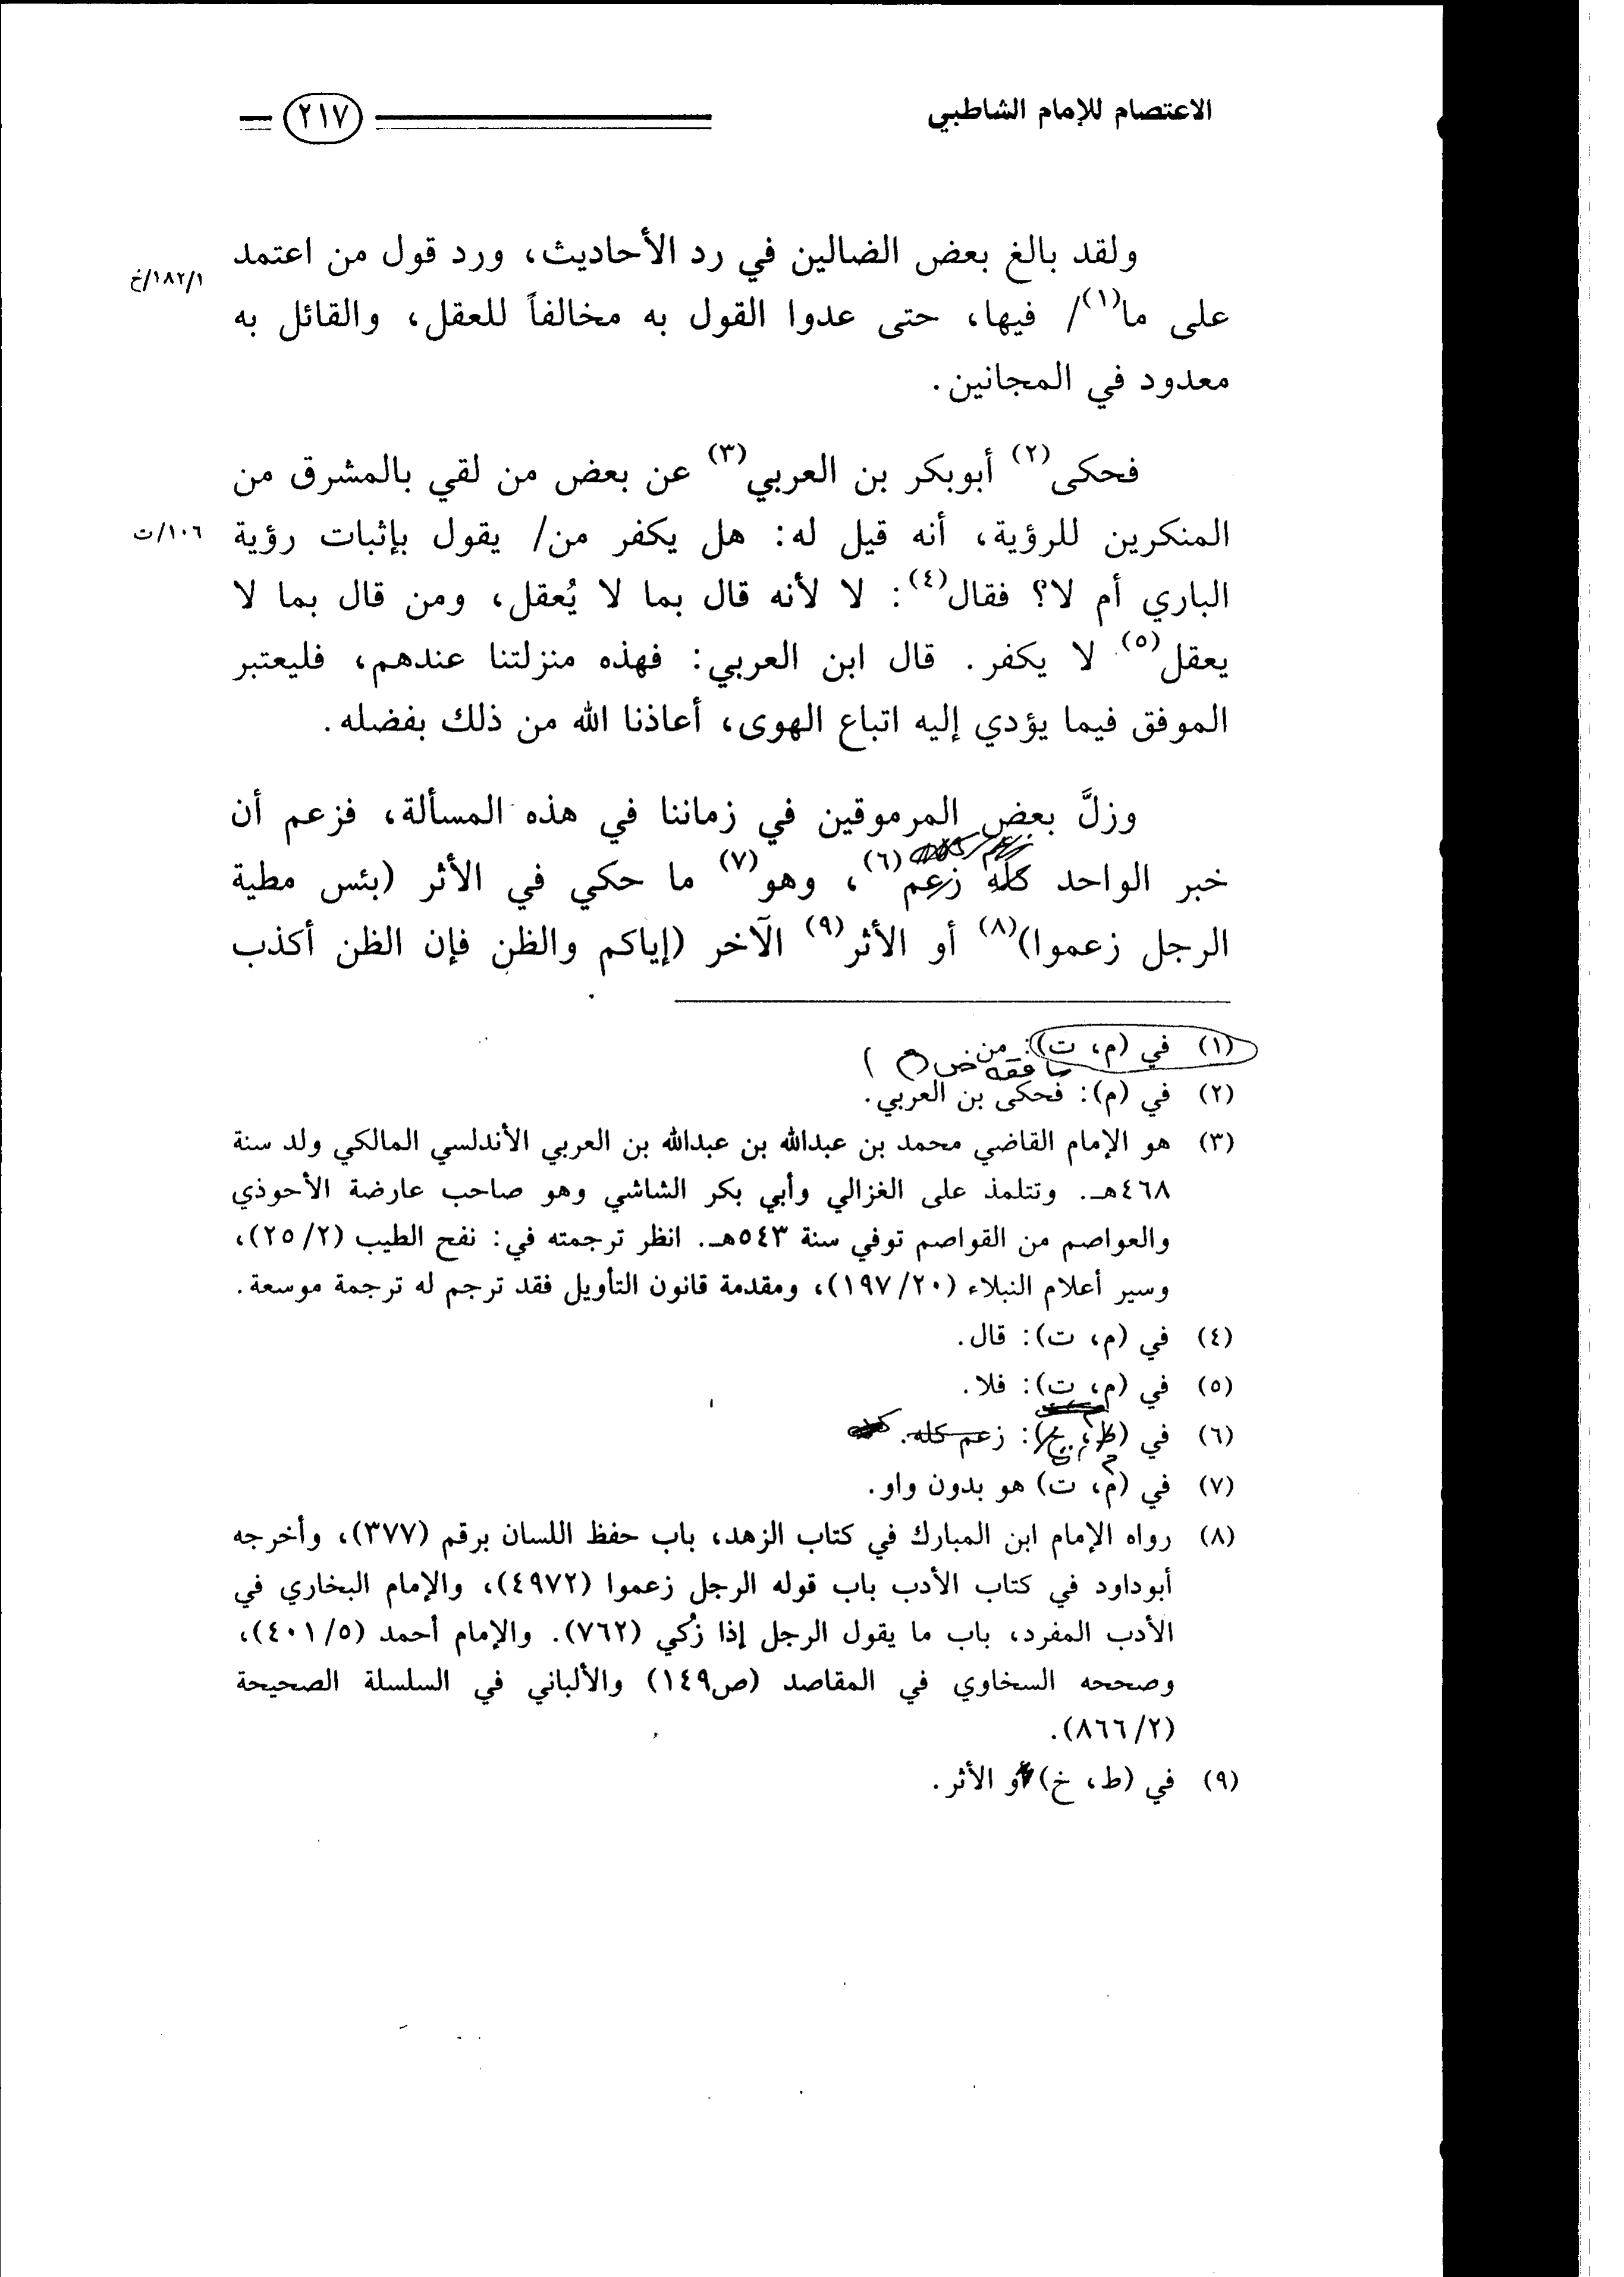 الاعتصام للإمام الشاطبي
٢١٧
ولقد بالغ بعض الضالين في رد الأحاديث، ورد قول من اعتمد
١٨٢/١/خ
على ما(١)/ فيها، حتى عدوا القول به مخالفاً للعقل، والقائل به
معدود في المجانين.
فحكى(٢) أبوبكر بن العربي(٣) عن بعض من لقي بالمشرق من
المنكرين للرؤية، أنه قيل له: هل يكفر من/ يقول بإثبات رؤية
١٠٦/ت
الباري أم لا؟ فقال(٤): لا لأنه قال بما لا يُعقل، ومن قال بما لا
يعقل(٥) لا يكفر. قال ابن العربي: فهذه منزلتنا عندهم، فليعتبر
الموفق فيما يؤدي إليه اتباع الهوى، أعاذنا الله من ذلك بفضله.
وزلَّ بعض المرموقين في زماننا في هذه المسألة، فزعم أن
خبر الواحد كله زعم(٦)، وهو(٧) ما حكي في الأثر (بئس مطية
الرجل زعموا)(٨) أو الأثر(٩) الآخر (إياكم والظن فإن الظن أكذب
(١) في (م، ت): من
(٢) في (م): فحكى بن العربي.
(٣) هو الإمام القاضي محمد بن عبدالله بن عبدالله بن العربي الأندلسي المالكي ولد سنة
٤٦٨هـ. وتتلمذ على الغزالي وأبي بكر الشاشي وهو صاحب عارضة الأحوذي
والعواصم من القواصم توفي سنة ٥٤٣هـ. انظر ترجمته في: نفح الطيب (٢٥/٢)،
وسير أعلام النبلاء (١٩٧/٢٠)، ومقدمة قانون التأويل فقد ترجم له ترجمة موسعة.
(٤) في (م، ت): قال.
(٥) في (م، ت): فلا.
(٦) في (ط، خ): زعم كله.
(٧) في (م، ت) هو بدون واو.
(٨) رواه الإمام ابن المبارك في كتاب الزهد، باب حفظ اللسان برقم (٣٧٧)، وأخرجه
أبوداود في كتاب الأدب باب قوله الرجل زعموا (٤٩٧٢)، والإمام البخاري في
الأدب المفرد، باب ما يقول الرجل إذا زُكي (٧٦٢). والإمام أحمد (٤٠١/٥)،
وصححه السخاوي في المقاصد (ص١٤٩) والألباني في السلسلة الصحيحة
(٨٦٦/٢).
(٩) في (ط، خ) أو الأثر.